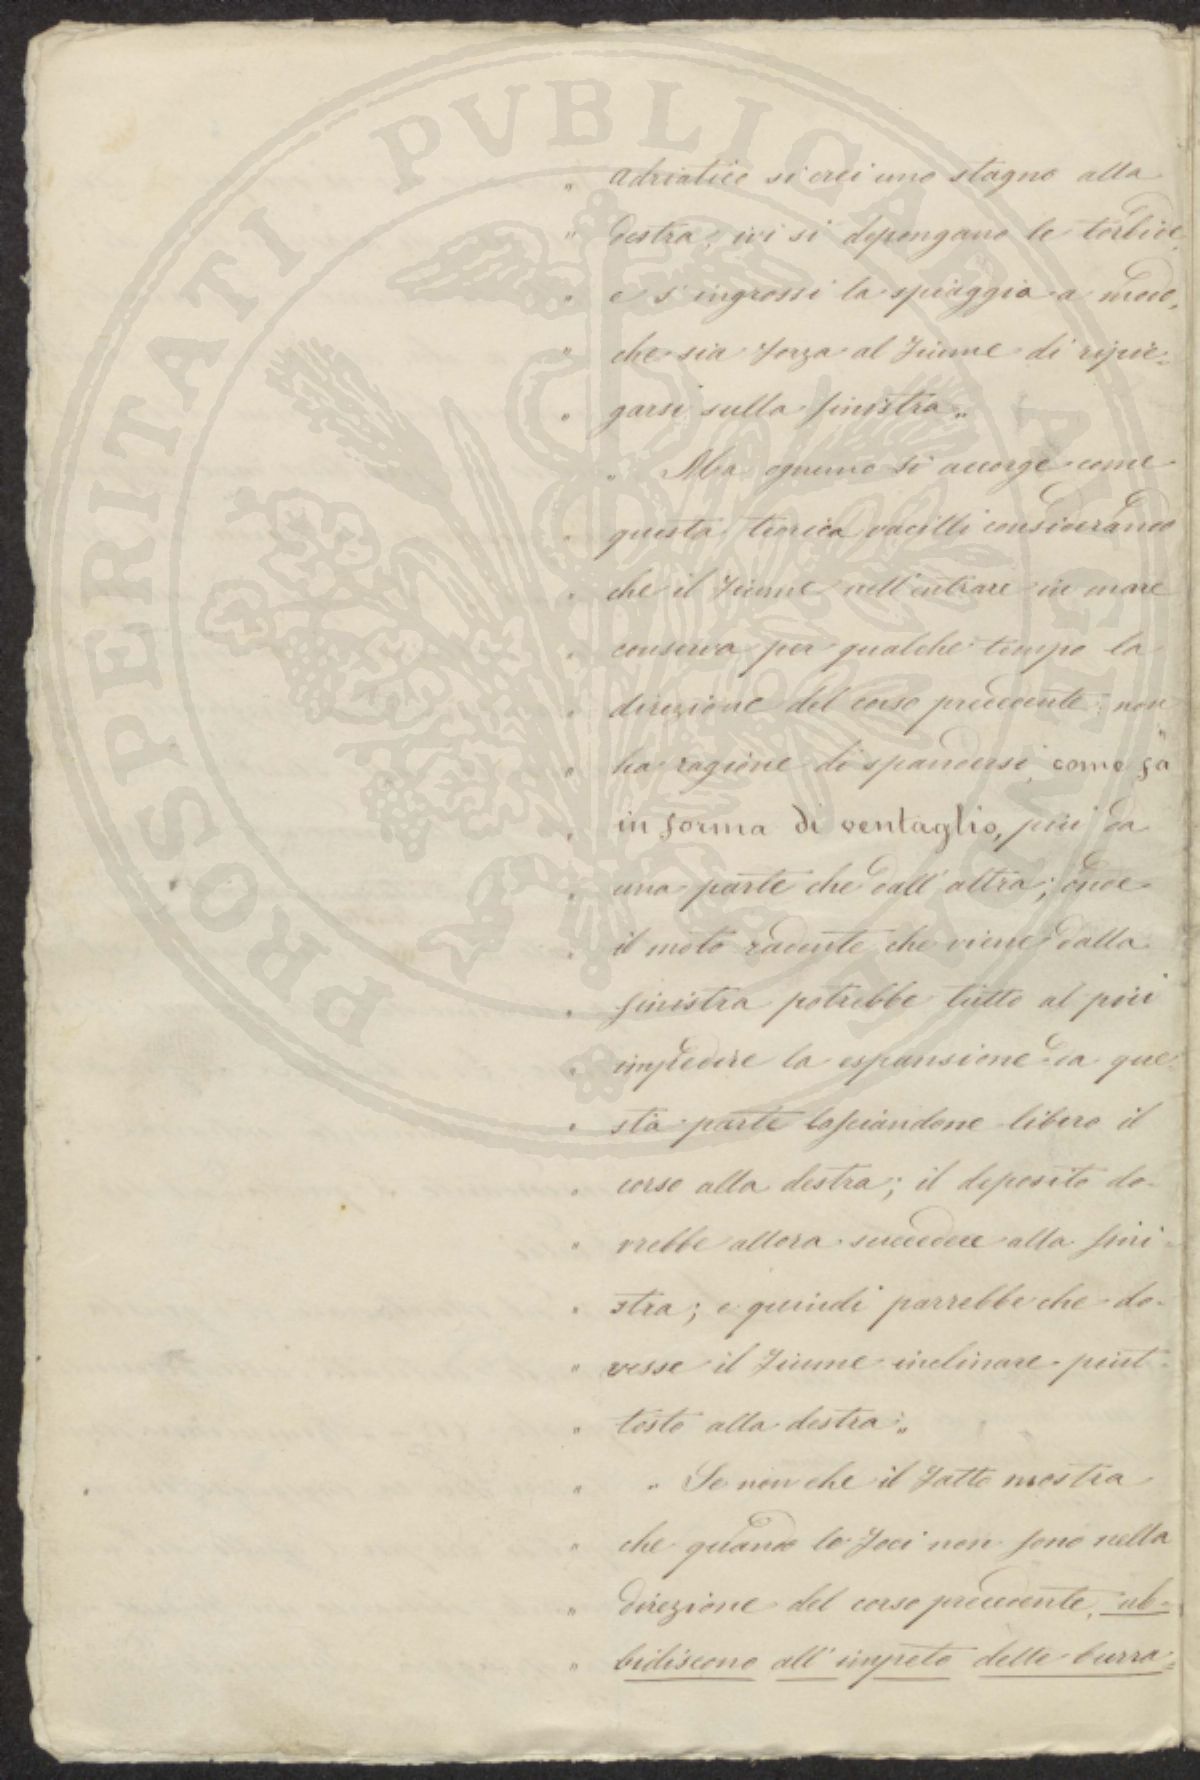 PROSPERITATI PVBLICAE AVGENDAE
" adriatice si crei uno stagno alla
" destra, ivi si depongano le torbide,
" e s'ingrossi la spiaggia a modo,
" che sia forza al fiume di ripie-
" garsi sulla sinistra „
" Ma ognuno si accorge come
" questa teorica vacilli considerando
" che il fiume nell'entrare in mare
" conserva per qualche tempo la
" direzione del corso precedente: non
" ha ragione di spandersi, come fa
" in forma di ventaglio, più da
" una parte che dall'altra; onde
" il moto radente che viene dalla
" sinistra potrebbe tutto al più
" impedire la espansione da que-
" sta parte lasciandone libero il
" corso alla destra; il deposito do-
" vrebbe allora succedere alla sini-
" stra; e quindi parrebbe che do-
" vesse il fiume inclinare piut-
" tosto alla destra „
" " Se non che il fatto mostra
" che quando le foci non sono nella
" direzione del corso precedente, ub-
" bidiscono all'impeto delle burra-